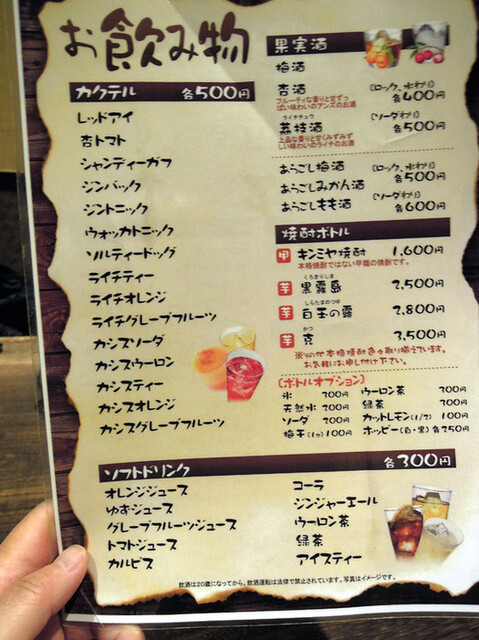 お飲み物
カクテル 各500円
レッドアイ
杏トマト
シャンディーガフ
ジンバック
ジントニック
ウォッカトニック
ソルティードッグ
ライチティー
ライチオレンジ
ライチグレープフルーツ
カシスソーダ
カシスウーロン
カシスティー
カシスオレンジ
カシスグレープフルーツ
果実酒
梅酒
杏酒
フルーティな香りと甘ずっ
ぱい味わいのアンズのお酒
(ロック、水わり)
各400円
ライチチュウ
茘枝酒
上品な香りと甘くみずみず
しい味わいのライチのお酒
(ソーダわり)
各500円
あらごし梅酒
あらごしみかん酒
あらごしもも酒
(ロック、水わり)
各500円
(ソーダわり)
各600円
焼酎ボトル
甲 キンミヤ焼酎 1,600円
本格焼酎ではない甲類の焼酎です。
くろきりしま
芋 黒霧島 2,500円
しらたまのつゆ
芋 白玉の露 2,800円
かつ
芋 克 3,500円
※その他本格焼酎色々取り揃えています。
お気軽にお申し付け下さい。
〔ボトルオプション〕
氷 200円
天然水 200円
ソーダ 200円
梅干(1ヶ) 100円
ウーロン茶 200円
緑茶 200円
カットレモン(1/2) 100円
ホッピー(白・黒) 各250円
ソフトドリンク 各300円
オレンジジュース
ゆずジュース
グレープフルーツジュース
トマトジュース
カルピス
コーラ
ジンジャーエール
ウーロン茶
緑茶
アイスティー
飲酒は20歳になってから。飲酒運転は法律で禁止されています。写真はイメージです。